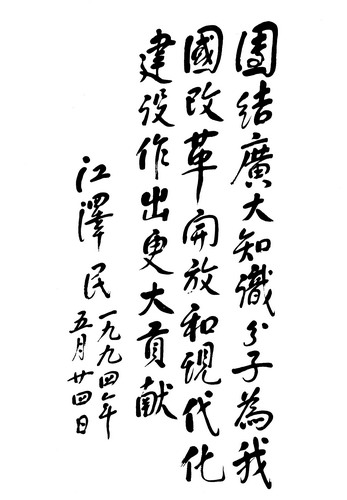 團结廣大知識分子為我
國改革開放和現代化
建设作出更大貢献
江澤民
一九九四年
五月廿四日